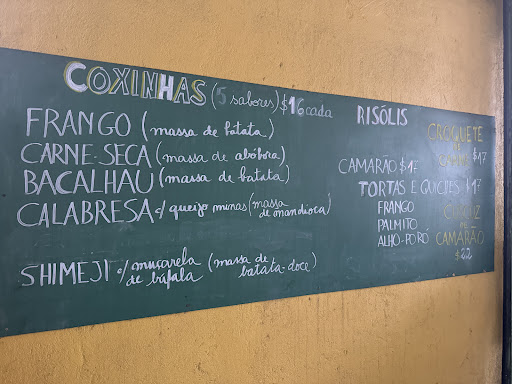 COXINHAS (5 sabores) $16 cada
FRANGO (massa de batata)
CARNE-SECA (massa de abóbora)
BACALHAU (massa de batata)
CALABRESA c/ queijo minas (massa
de mandioca)
SHIMEJI c/ muçarela
de búfala (massa de
batata-doce)
RISÓLIS
CAMARÃO $17
TORTAS E QUICHES $17
FRANGO
PALMITO
ALHO-PORÓ
CROQUETE
DE
$17
CAMARÃO
$22